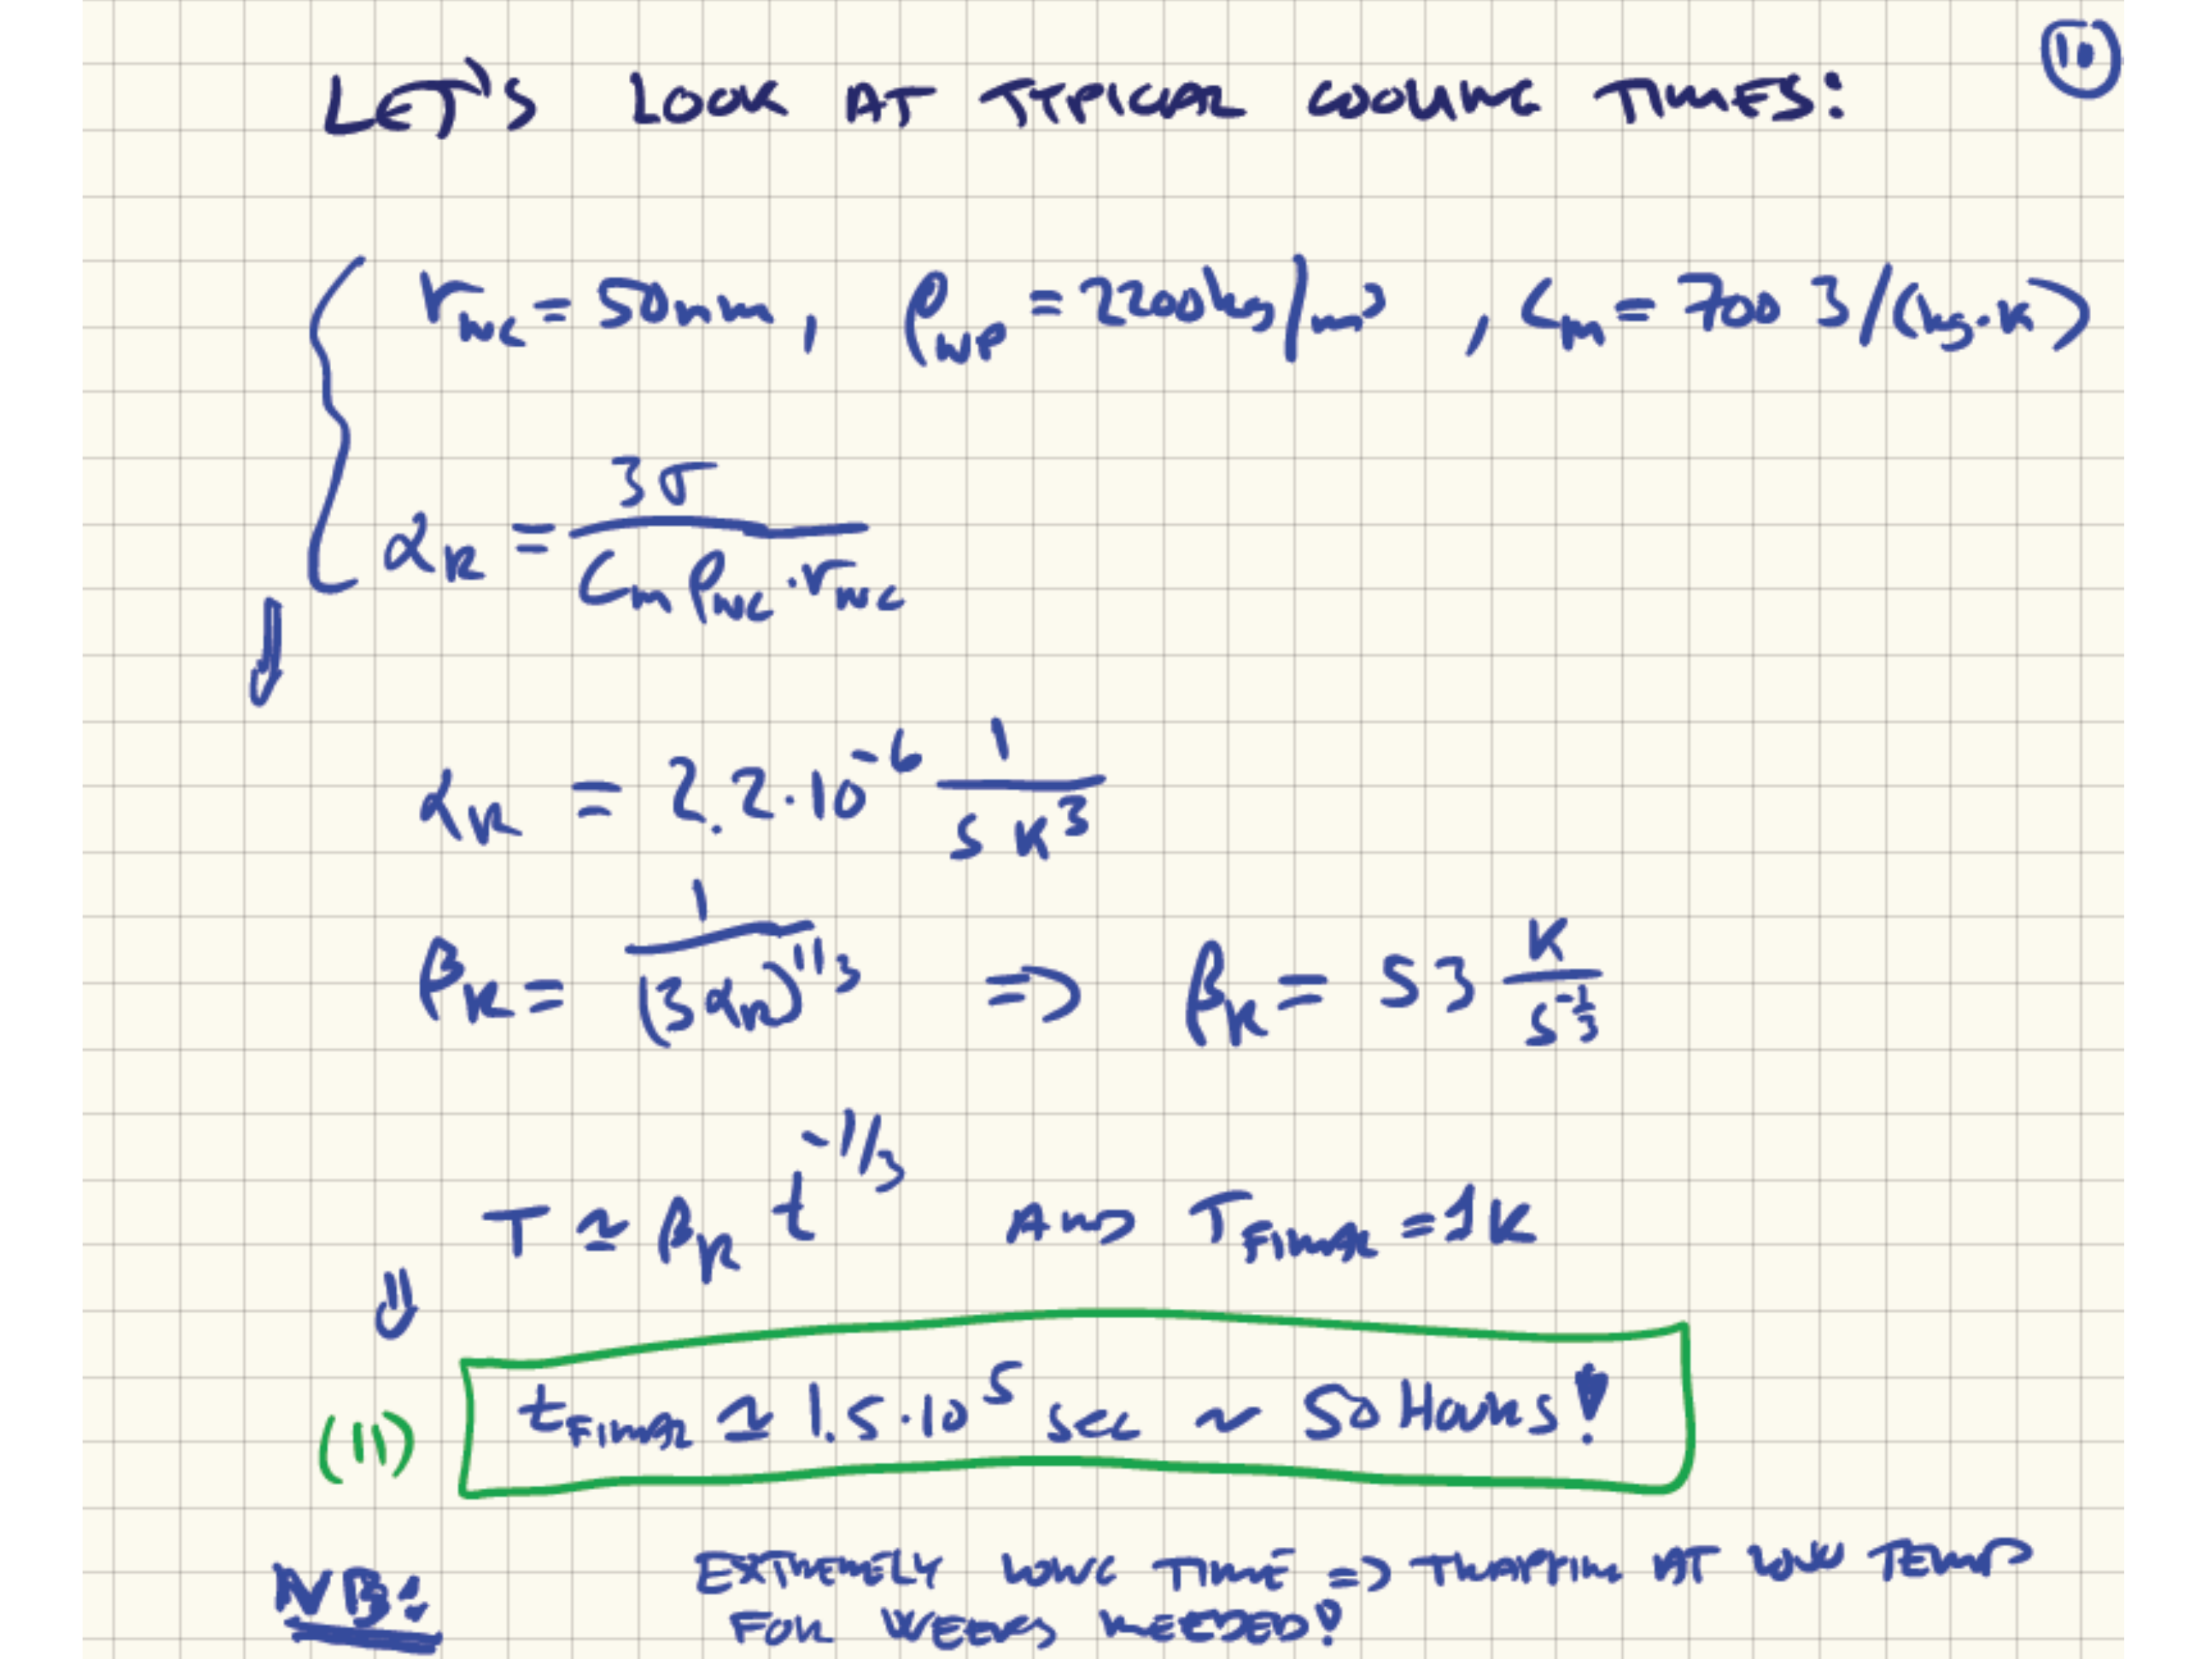 10
LET'S LOOK AT TYPICAL COOLING TIMES:
r_NC = 50nm, ρ_NP = 2200kg/m³, C_m = 700 J/(kg·K)
α_R = 3σ / (C_m ρ_NC · r_NC)
⇓
α_R = 2.2·10⁻⁶ 1/(s K³)
β_R = 1/(3α_R)^(1/3) ⇒ β_R = 53 K/s^(-1/3)
T ≃ β_R t^(-1/3) AND T_FINAL = 1K
⇓
(11) t_FINAL ≃ 1.5·10⁵ sec ~ 50 Hours!
NB: EXTREMELY LONG TIME ⇒ TRAPPING AT LOW TEMP
FOR WEEKS NEEDED!